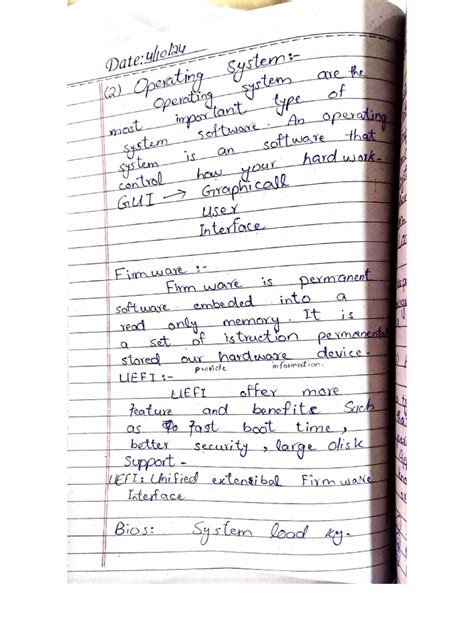 Date: 4/10/24
(2) Operating System:-
Operating system are the
most important type of
system software. An operating
system is an software that
control how your hard work.
GUI → Graphicall
User
Interface
Firmware :-
Firm ware is permanent
software embeded into a
read only memory. It is
a set of istruction permanental
stored our hardware device.
provide information.
UEFI :-
UEFI offer more
feature and benefits Such
as fast boot time,
better security, large disk
Support -
UEFI: Unified extensibal Firm ware
Interface
Bios: System load ky.